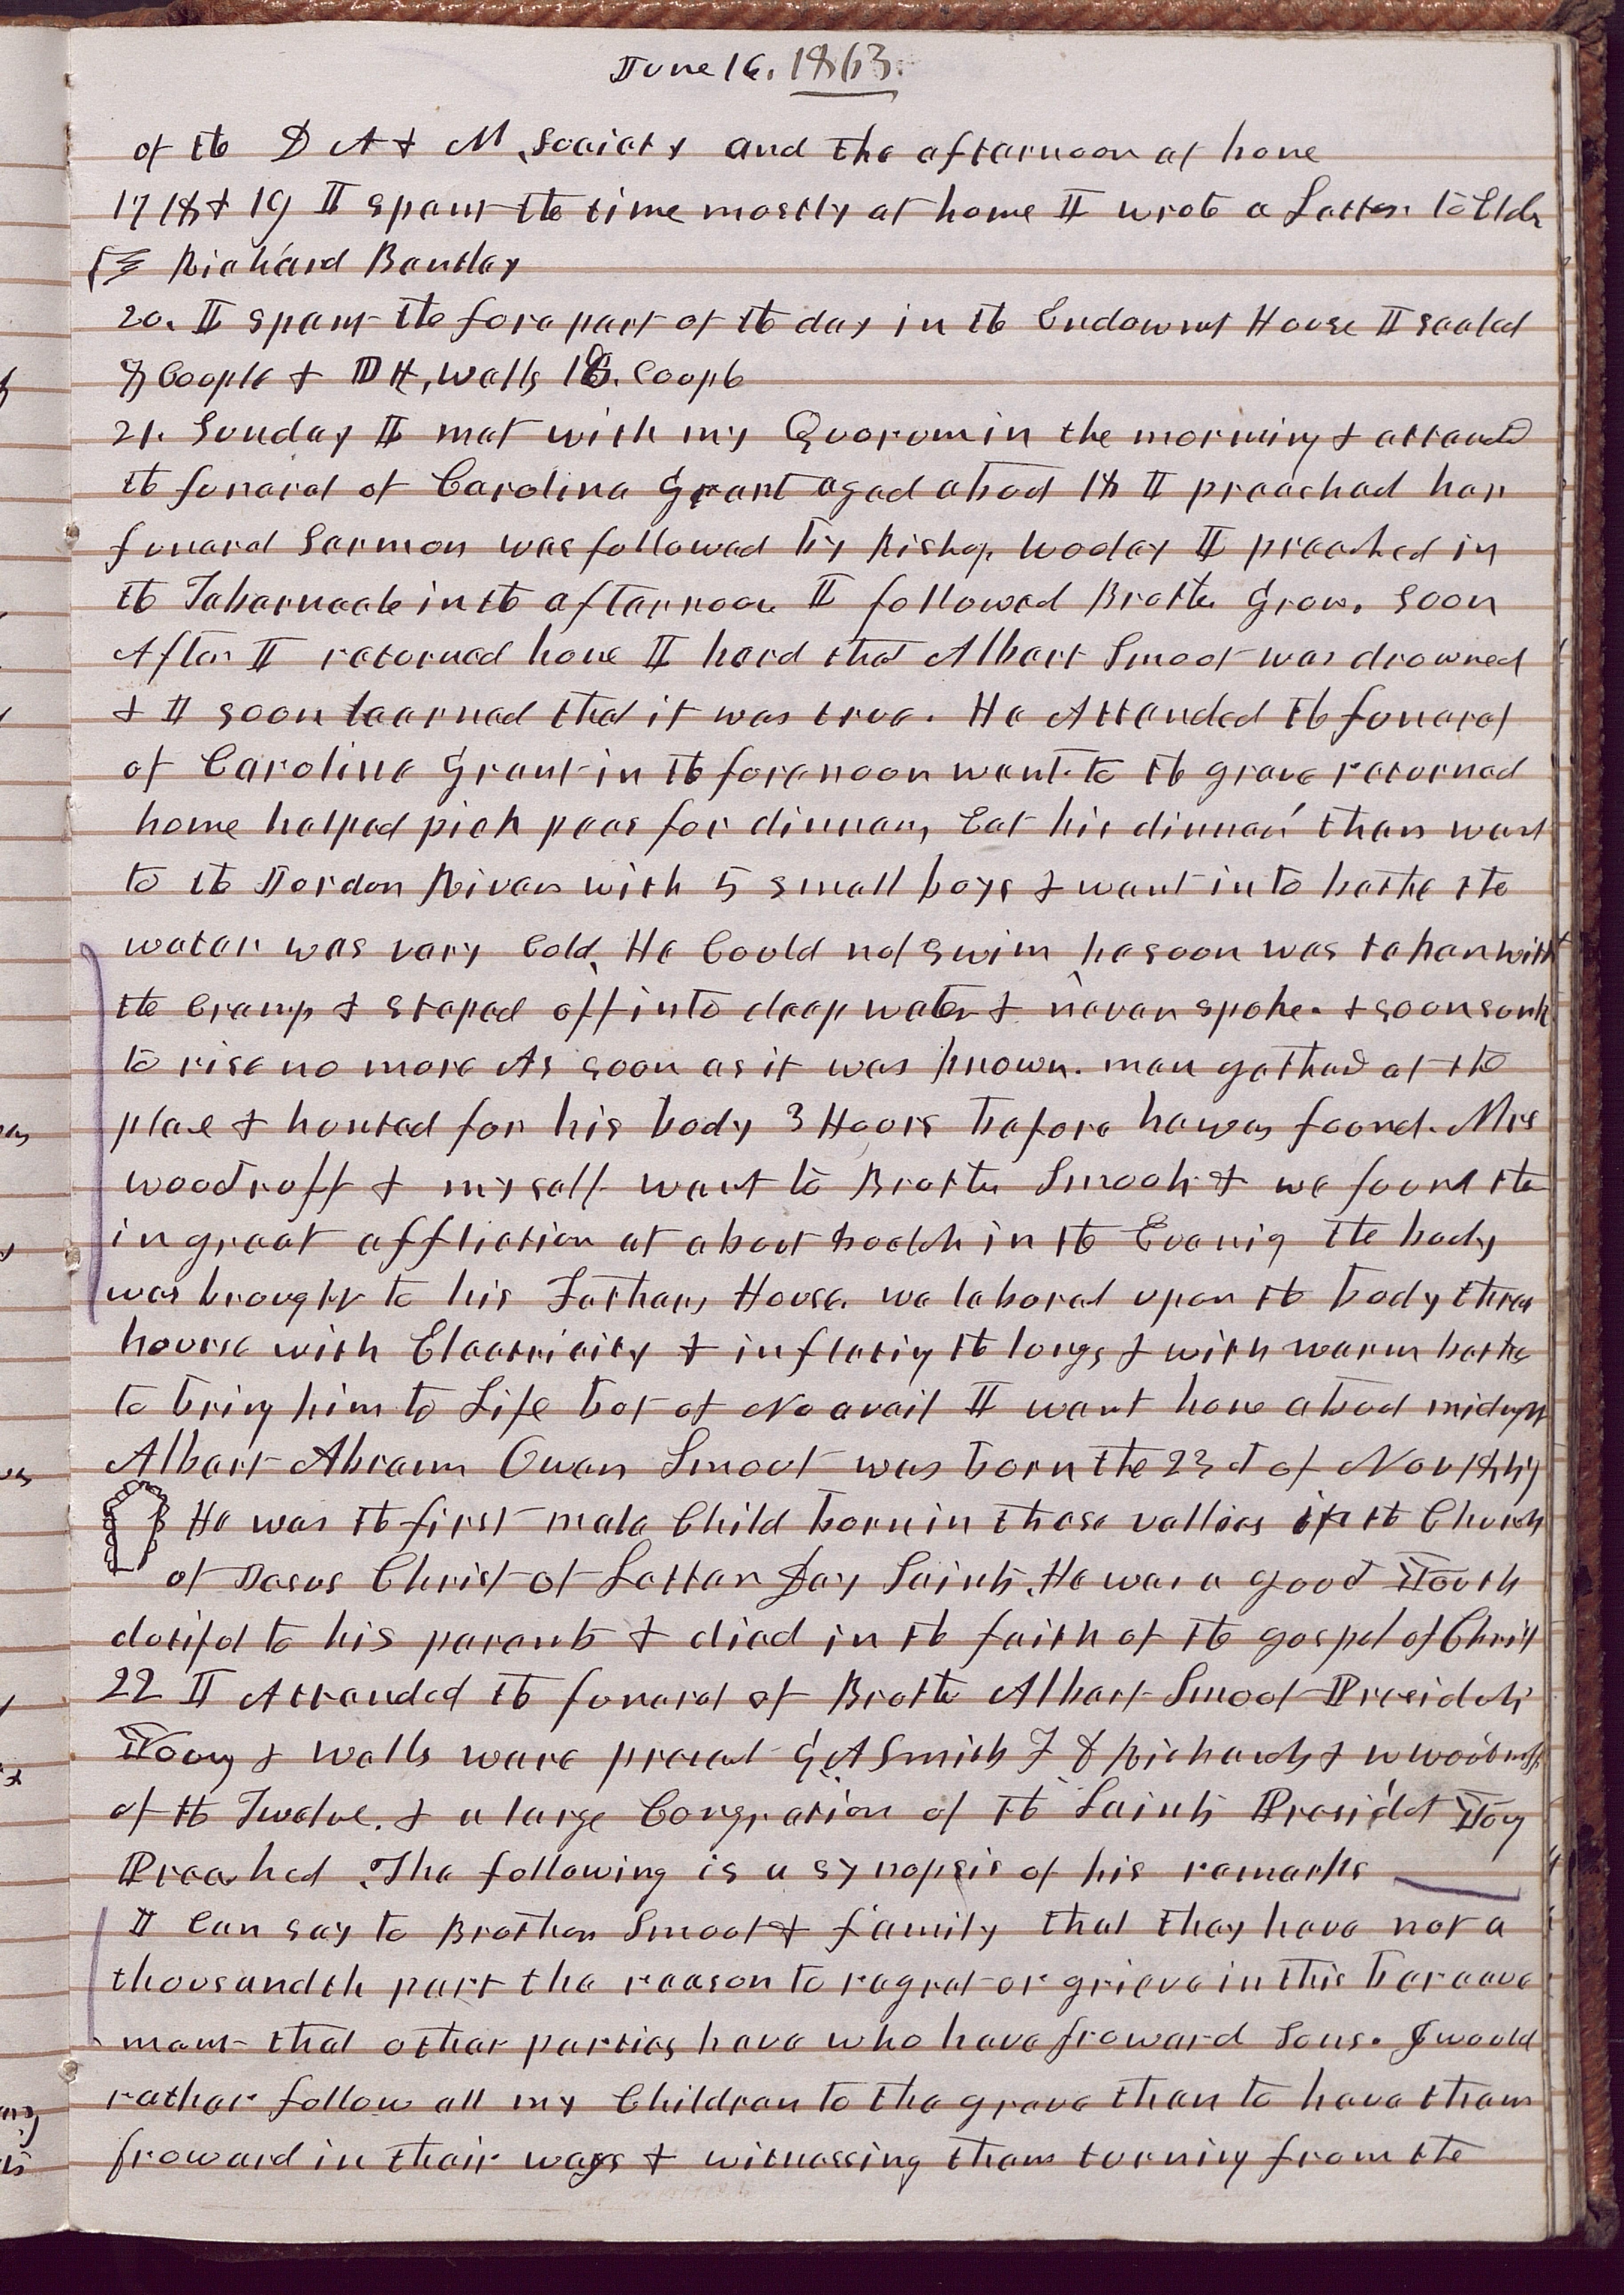 June 16. 1863.
of the D A & M. Society and the afternoon at home
17 18 & 19 I spent the time mostly at home I wrote a Letter to Elder
Richard Bentley
20. I spent the fore part of the day in the Endowmet House I sealed
8 Couple & D H, Wells 16. Couple
21. Sunday I met with my Quorum in the morning & attended
the funeral of Caroline Grant aged about 18 I preached her
funeral Sermon was followed by Bishop Wooley I preached in
the Tabernacle in the afternoon I followed Brother Grow. Soon
After I returned home I herd that Albert Smoot was drowned
& I soon learned that it was true. He Attended the funeral
of Caroline Grant in the forenoon went to the grave returned
home helped pick peas for dinner, Eat his dinner then went
to the Jordon River with 5 small boys & went in to bathe the
water was very Cold, He Could not swim he soon was taken with
the Cramp & steped off into deep water & never spoke. & soon sunk
to rise no more As soon as it was known. men gathed at the
place & hunted for his body 3 Hours before he was found. Mrs
Woodruff & myself went to Brother Smoots & we found the
in great affliction at about in the Evenig the body
was brought to his Fathers House. we labored upon the body three
hours with Electricity & inflatig the lungs & with warm baths
to bring him to Life but of No avail I went home about midnight
Albert Abram Owen Smoot was born the 23d of Nov 1847
He was the first male Child born in these vallies in the Church
of Jesus Christ of Latter Day Saints. He was a good Youth
dutiful to his parents & died in the faith of the gospel of Christ
22 I Attended the funeral of Brother Albert Smoot Presidets
Young & Wells were preset G A Smith F D Richards & W Woodruff
of the Twelve. & a large Congration of the Saints Presidet Yog
Preached. The following is a synopsis of his remarks
I Can say to Brother Smoot & family that they have not a
thousandth part the reason to regret or grieve in this bereave
ment that other parties have who have froward Sons. I would
rather follow all my Children to the grave than to have them
froward in their ways & witnessing them turning from the